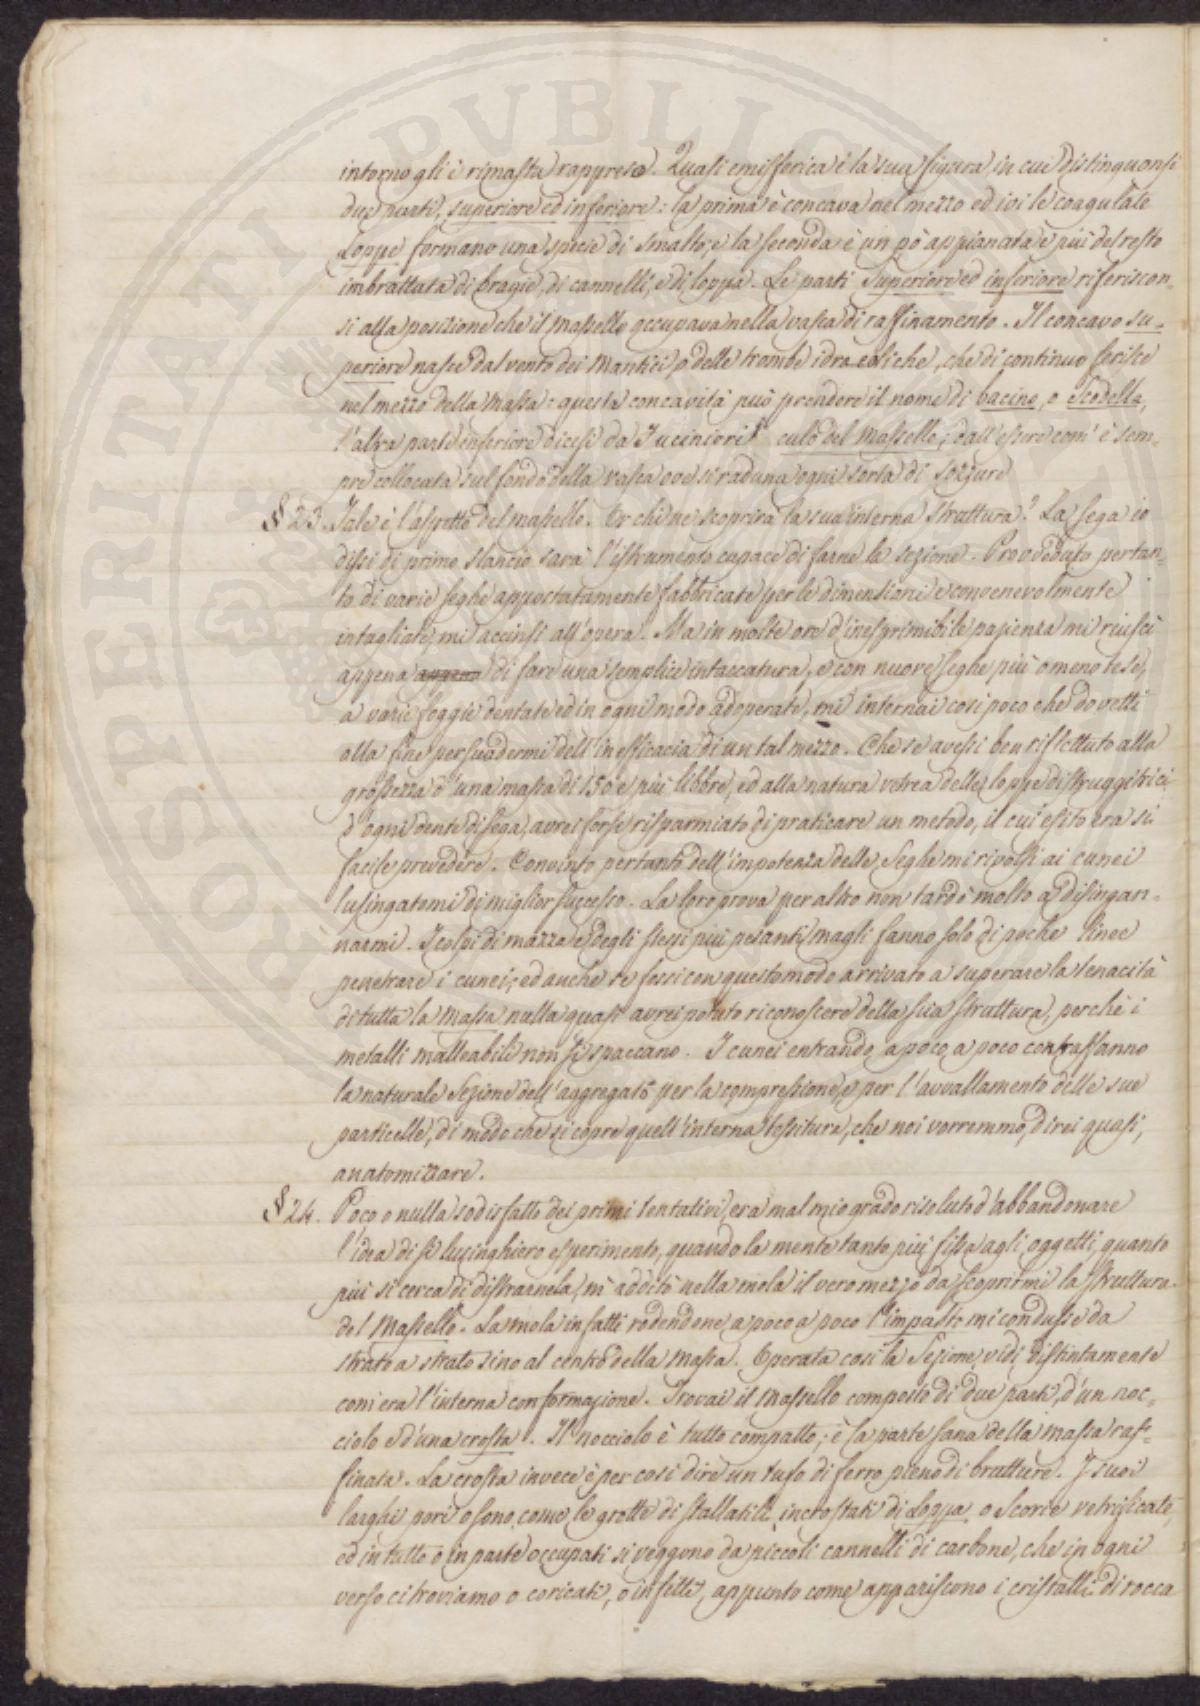 intorno gli è rimasta rappresa. Quasi emisferica è la sua figura, in cui distinguonsi
due parti, superiore ed inferiore: la prima è concava nel mezzo ed ivi le coagulate
Loppe formano una specie di smalto; e la seconda è un pò appianata e più del resto
imbrattata di bragie, di cannelli, e di loppa. Le parti Superiore ed inferiore riferiscon-
si alla posizione che il Massello occupava nella vasca di raffinamento. Il concavo su-
periore nasce dal vento dei Mantici, o delle trombe idraeoliche, che di continuo ferisce
nel mezzo della Massa: questa concavità può prendere il nome di bacino, o Scodella,
l'altra parte inferiore dicesi da Fucinieri culo del Massello, dall'essere com' è sem-
pre collocata sul fondo della vasca ove si raduna ogni sorta di sozzure
§ 23. Tale è l'aspetto del massello. Or chi ne scoprirà la sua interna struttura? La sega io
dissi di primo slancio sarà l'istrumento capace di farne la sezione. Provveduto pertan-
to di varie seghe appostatamente fabbricate per le dimensioni e convenevolmente
intagliate, mi accinsi all'opera. Ma in molte ore d'inesprimibile pazienza mi riuscì
appena appena di fare una semplice intaccatura, e con nuove seghe più o meno tese,
a varie foggie dentate ed in ogni modo adoperate, mi internai così poco che dovetti
alla fine persuadermi dell'inefficacia di un tal mezzo. Che se avessi ben riflettuto alla
grossezza d'una massa di 150 e più libbre, ed alla natura vetrea delle loppe distruggitrici
d'ogni dente di sega, avrei forse risparmiato di praticare un metodo, il cui esito era sì
facile prevedere. Convinto pertanto dell'impotenza delle Seghe mi rivolsi ai cunei
lusingatomi di miglior successo. La loro prova per altro non tardò molto a disingan-
narmi. I colpi di mazza e degli stessi più pesanti magli fanno solo di poche linee
penetrare i cunei; ed anche se fossi con questo modo arrivato a superare la tenacità
di tutta la Massa nulla quasi avrei potuto riconoscere della sua struttura, perchè i
metalli malleabili non si spaccano. I cunei entrando a poco a poco contraffanno
la naturale Sezione dell'aggregato per la compressione, e per l'avvallamento delle sue
particelle, di modo che si copre quell'interna tessitura, che noi vorremmo, direi quasi,
anatomizzare.
§ 24. Poco o nulla sodisfatto dei primi tentativi, era mal mio grado risoluto d'abbandonare
l'idea di sì lusinghiero esperimento, quando la mente tanto più fissa agli oggetti, quanto
più si cerca di distraernela, m' additò nella mola il vero mezzo da scoprirmi la struttura
del Massello. La mola infatti rodendone a poco a poco l'impasto mi condusse da
strato a strato sino al centro della Massa. Operata così la Sezione, vidi distintamente
com'era l'interna conformazione. Trovai il Massello composto di due parti, d'un noc-
ciolo e d'una crosta. Il nocciolo è tutto compatto, è la parte sana della massa raf-
finata. La crosta invece è per così dire un tufo di ferro pieno di brutture. I suoi
larghi pori o sono come le grotte di stallatiti incrostati di Loppa, o Scorie vetrificate,
ed in tutto o in parte occupati si veggono da piccoli cannelli di carbone, che in ogni
verso ci troviamo o coricati, o in fitti, appunto come appariscono i cristalli di rocca